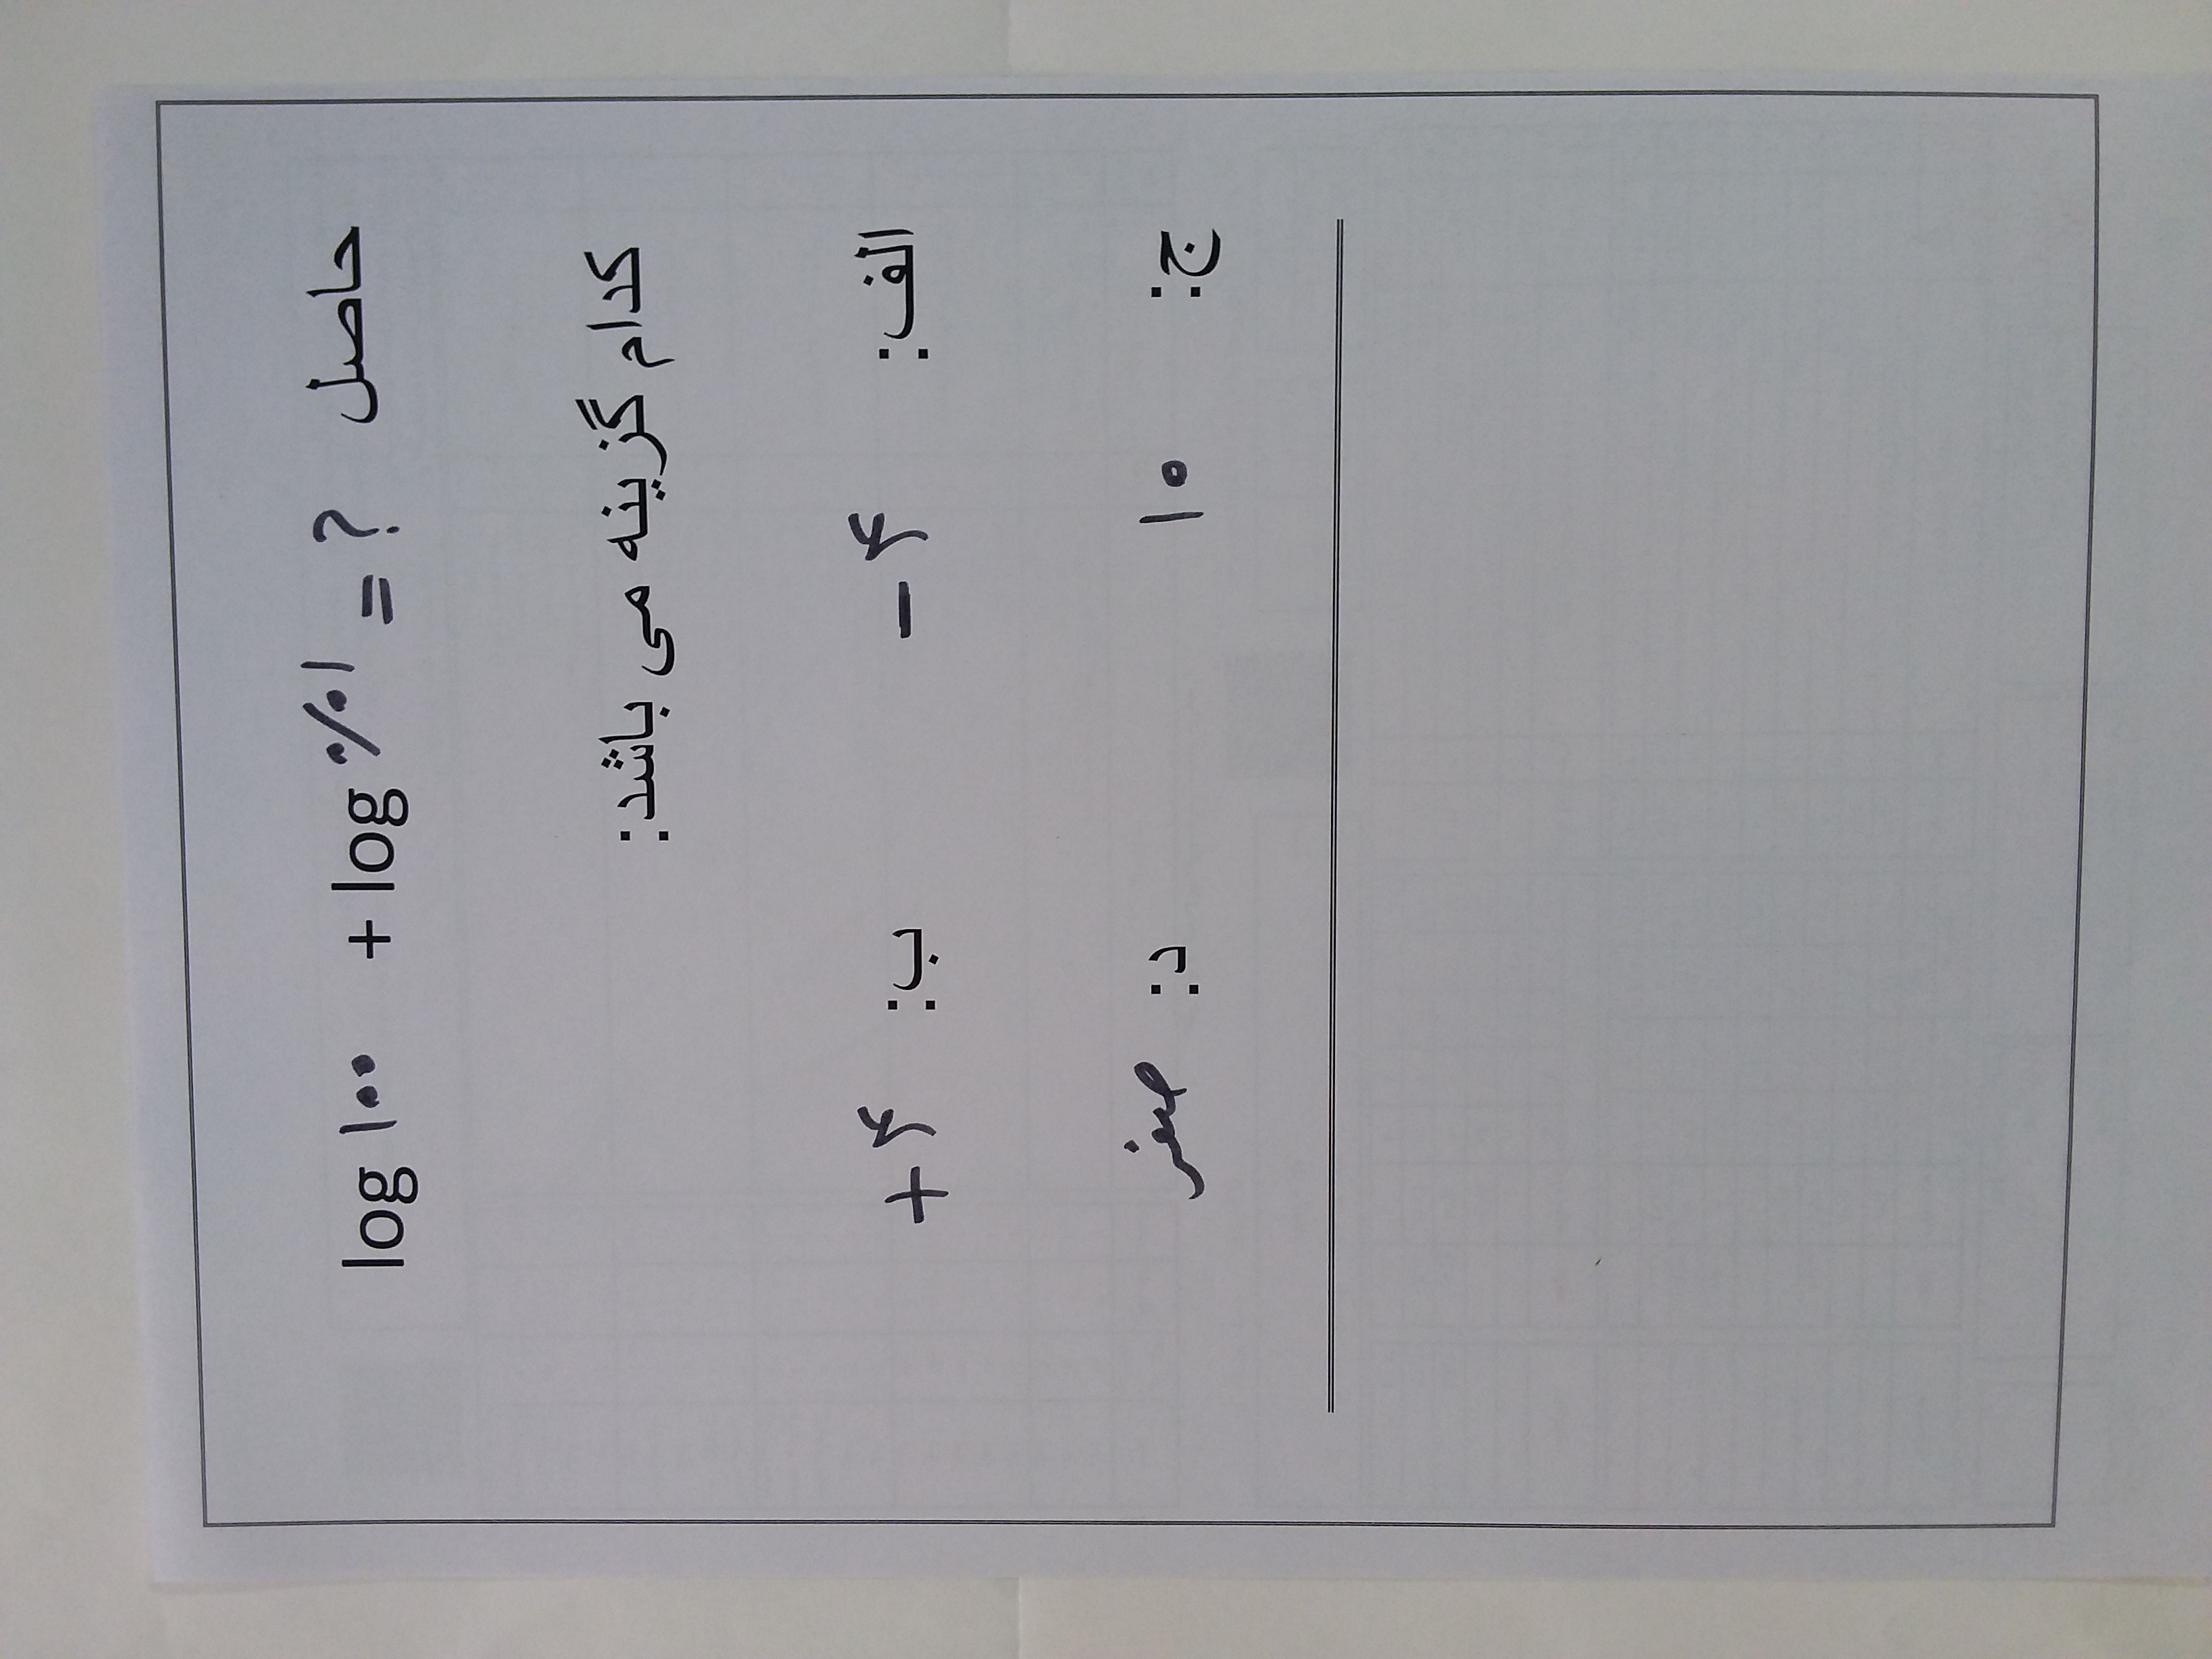 حاصل log ۱۰۰ + log ٪۰۱ = ?
کدام گزینه می باشد:
الف: -۴ ب: +۴
ج: ۱۰ د: صفر